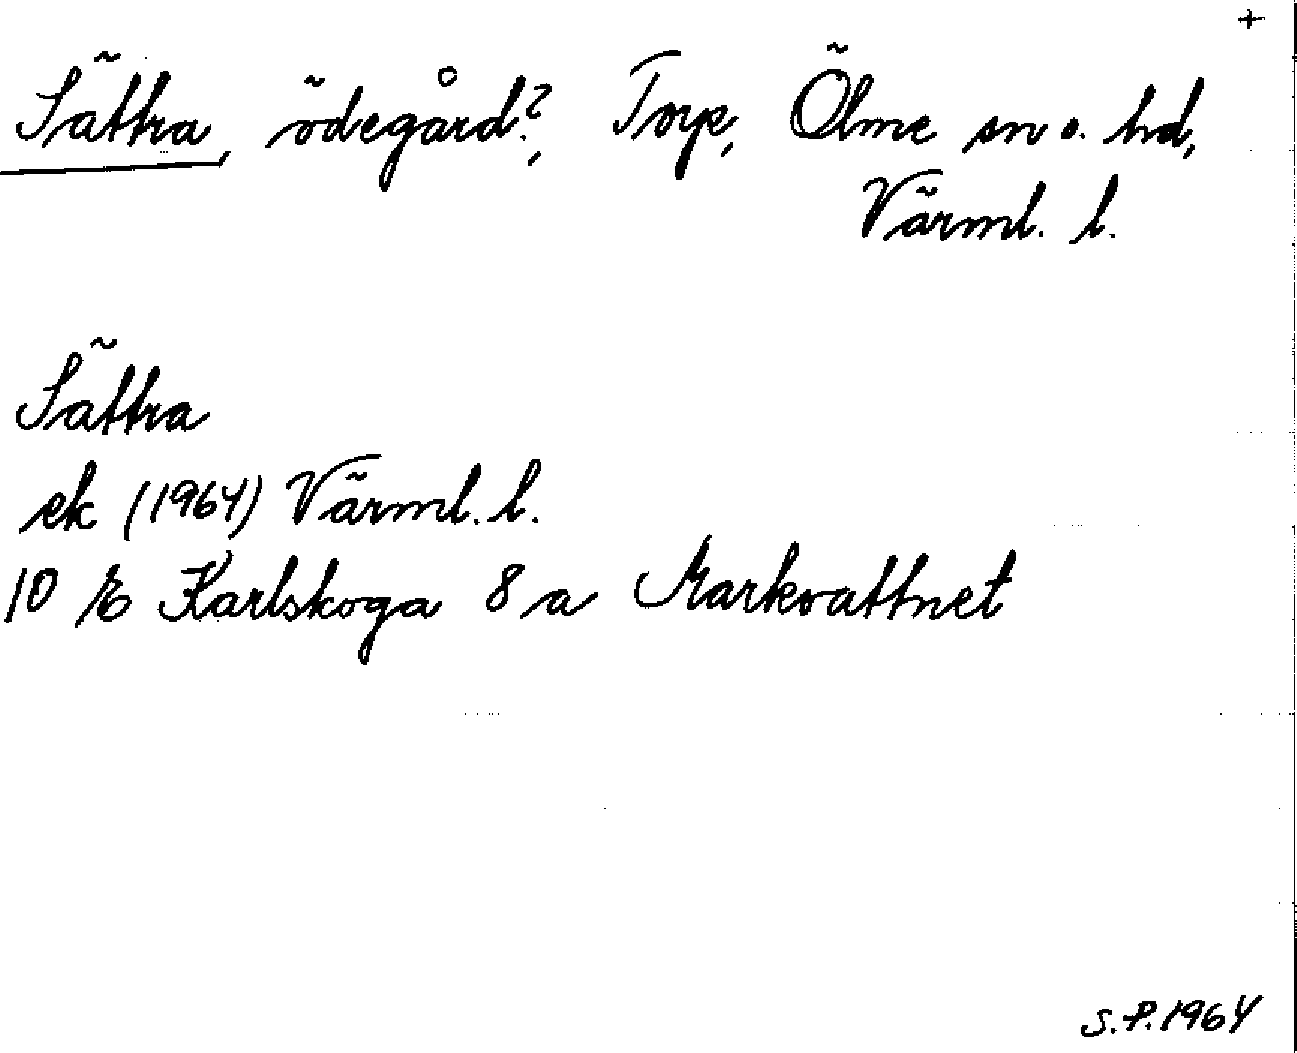 +
Sättra, ödegård?, Torp, Ölme sn o. hd,
Värml. l.
Sättra
ek (1964) Värml. l.
10 E Karlskoga 8 a Markvattnet
S.P. 1964